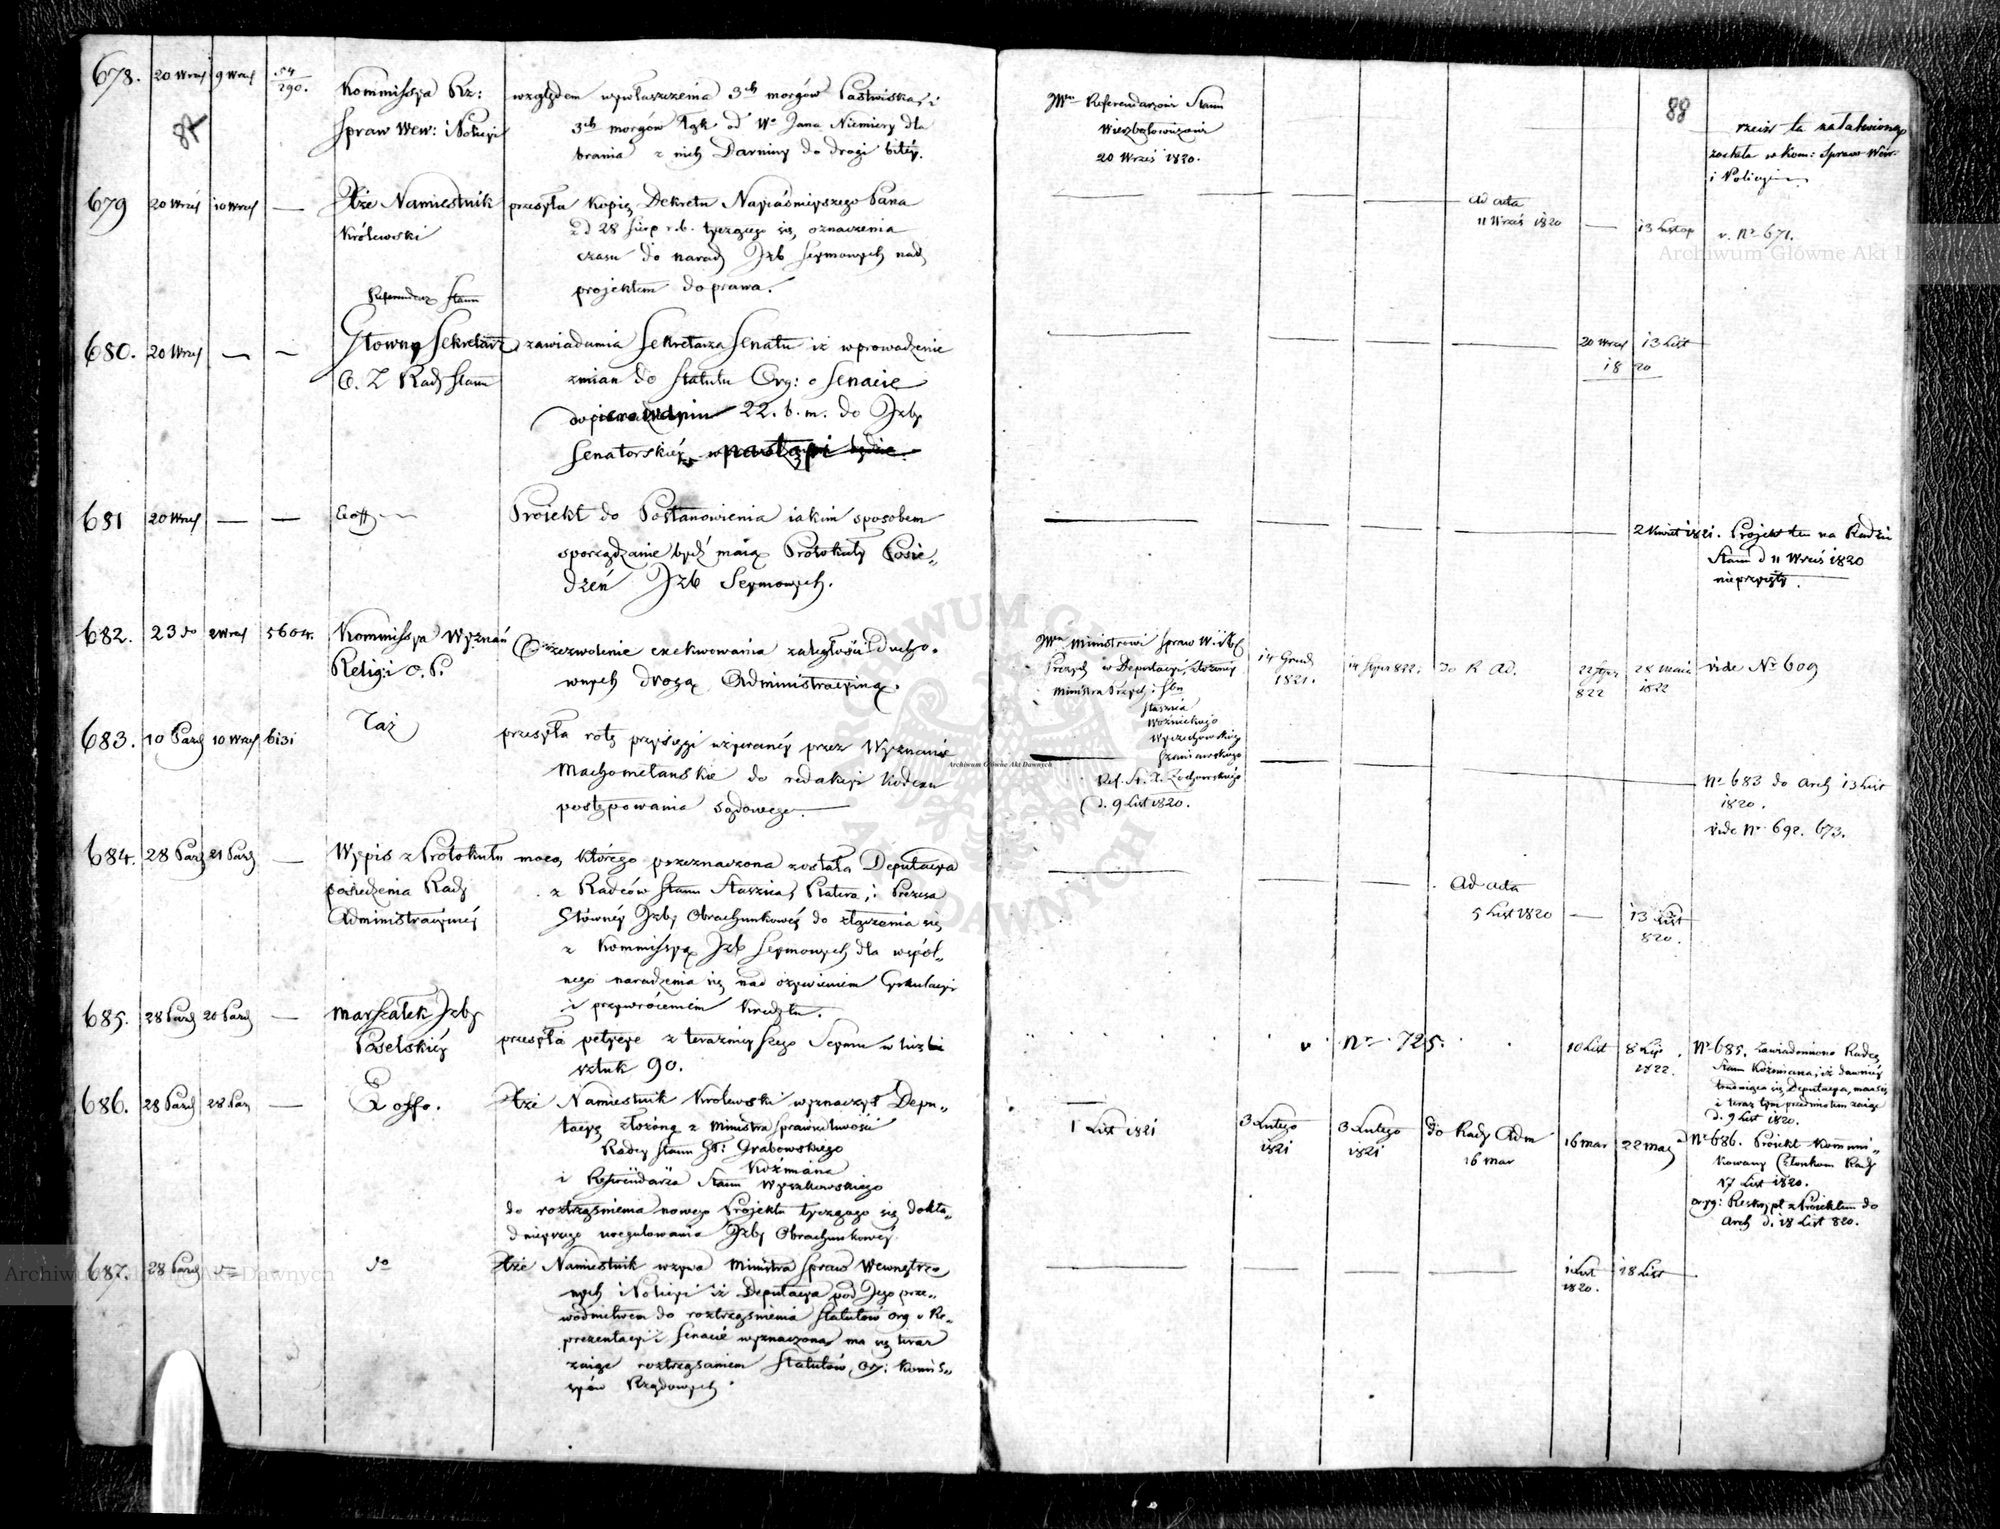 678. 20 Wrześ 9 Wrześ 54/290. Kommissya Rz: względem wywłaszczenia 3ch morgów Pastwiska, i
Spraw Wew: i Policyi 3ch morgów łąk od Wo Jana Niemiery dla
brania z nich Darniny do drogi bitey.
JWmu Referendarzowi Stanu
20 Wrześ 1820.
88
rzecz ta załatwioną
została w Kom: Spraw Wew.
i Policyi
679 20 Wrześ 10 Wrześ — Xże Namiestnik przesyła Kopię Dekretu Nayiaśnieyszego Pana
Królewski z d 28 Sierp r. b. tyczącego się oznaczenia
czasu do narad Izb Seymowych nad
projektem do prawa.
ad acta
11 Wrześ 1820 — 13 Listop v. No 671.
Referendarz Stanu
680. 20 Wrześ — — Główny Sekretarz zawiadamia Sekretarza Senatu iż wprowadzenie
O. Z Rady Stanu zmian do Statutu Org: o Senacie
22. b. m. do Izby
Senatorskiey nastąpi
20 Wrześ 13 List
18 20
681 20 Wrześ — — Projekt do Postanowienia iakim sposobem
sporządzane bydź maią Protokuły Posie-
dzeń Izb Seymowych.
2 Kwiet 1821. Projekt ten na Radzie
Stanu d 11 Wrześ 1820
nieprzyięty.
682. 23 do 2 Wrześ 5604. Kommissya Wyznań O zezwolenie exekwowania zaległości Ducho-
Religi: O. P. wnych drogą Administracyiną.
JWmu Ministrowi Spraw W. i Pol
Prezyd: w Deputacyi złożoney
Ministra Prezyd: i
Staszica
Woźnickiego
Wyczechowskiego
Szaniawskiego
Ref. St. X. Zochowskiego
d. 9 List 1820.
14 Grud 1821. 14 Stycz 822. do R Ad. 22 Stycz 822 28 Maia 1822 vide No 609
683. 10 Paźd 10 Wrześ 6131 Taż przesyła rotę przysięgi używaney przez Wyznanie
Machometańskie do redakcyi Kodexu
postępowania sądowego.
No 683 do Arch 13 List
1820.
vide No 692. 673.
684. 28 Paźd 21 Paźd — Wypis z Protokułu mocą którego przeznaczona została Deputacya
posiedzenia Rady z Radców Stanu Staszica, Platera, i Prezesa
Administracyiney Główney Izby Obrachunkowey do złączenia się
z Kommissyą Izb Seymowych dla wspól-
nego naradzenia się nad ożywieniem Cyrkulacyi
i przywróceniem Kredytu.
ad acta
5 List 1820 — 13 List
820.
685. 28 Paźd 20 Paźd — Marszałek Izby przesyła petycye z teraźnieyszego Seymu w liczbie
Poselskiey sztuk 90.
v No 725. 10 List 8 Lip 1822.
No 685. zawiadomiono Radcę
Stanu Koźmiana, iż dawniey
trudniąca się Deputacya, ma się
i teraz tym przedmiotem zaiąć
d. 9 List 1820.
686. 28 Paźd 28 Paź — Ex offo. Xże Namiestnik Królewski wyznaczył Depu-
tacyę złożoną z Ministra Sprawiedliwości
Radcy Stanu Grabowskiego
Koźmiana
i Referendarza Stanu Wyczechowskiego
do roztrząśnienia nowego Projektu tyczącego się dokła-
dnieyszego uregulowania Izby Obrachunkowey.
1 List 1821 3 Lutego 1821 3 Lutego 1821 do Rady Adm 16 Mar 16 Mar 22 Maj
No 686. Projekt kommuni-
kowany Członkom Rady
17 List 1820.
oryg: Reskrypt z Projektem do
Arch d. 18 List 820.
687. 28 Paźd do Xże Namiestnik wzywa Ministra Spraw Wewnętrz-
nych i Policyi iż Deputacya pod Jego prze-
wodnictwem do roztrząśnienia Statutów Org o Re-
prezentacyi i Senacie wyznaczona ma się teraz
zaiąć roztrząsaniem Statutów, Org: Kommis-
syów Rządowych.
1 List 1820. 18 List
Archiwum Główne Akt Dawnych
Archiwum Główne Akt Dawnych
Archiwum Główne Akt Dawnych
ARCHIWUM GŁÓWNE AKT DAWNYCH